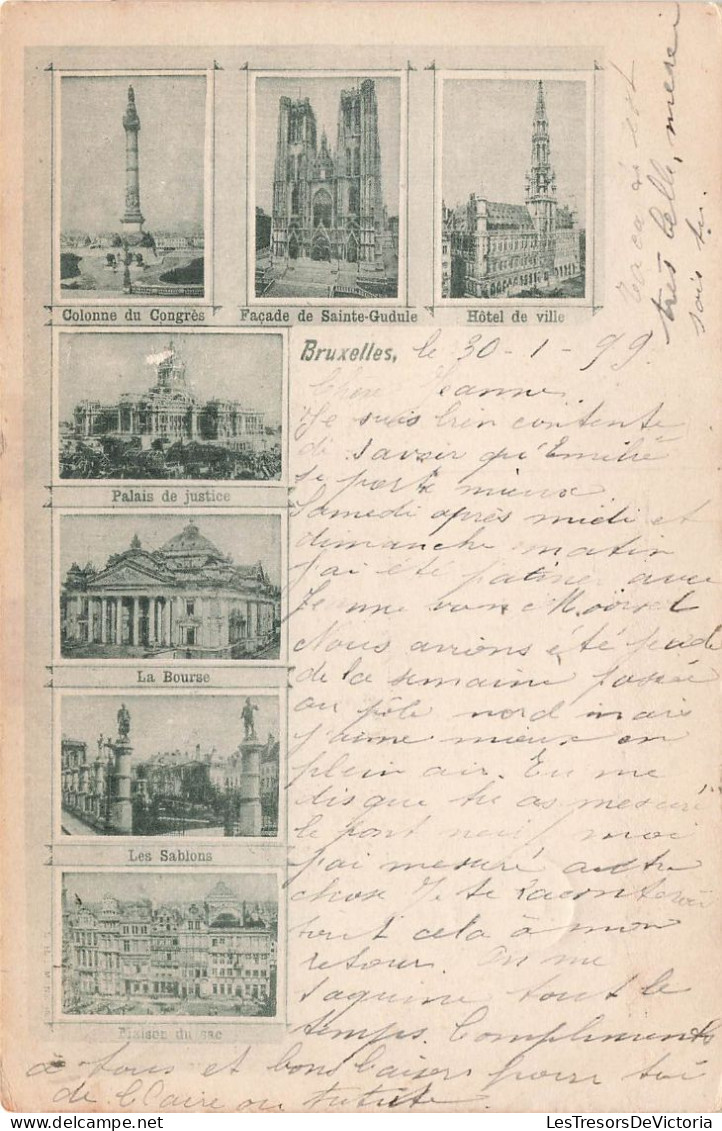 Colonne du Congrès
Façade de Sainte-Gudule
Hôtel de ville
Palais de justice
La Bourse
Les Sablons
Maison du sac
Bruxelles, le 30-1-99.
Chère Jeanne.
Je suis bien contente
de savoir qu'Emilie
se porte mieux.
Samedi après midi et
dimanche matin
j'ai été patiner avec
Jeanne van
Nous avions été
de la semaine passée
au pôle nord mais
j'aime mieux en
plein air. Tu me
dis que tu as mesuré
le pont neuf moi
j'ai mesuré autre
chose Je te raconterai
tout cela à mon
retour. On me
taquine tout le
temps. Compliments
à tous et bons baisers pour toi
de Claire ou
est
très belle, merci
LesTresorsDeVictoria
delcampe.net